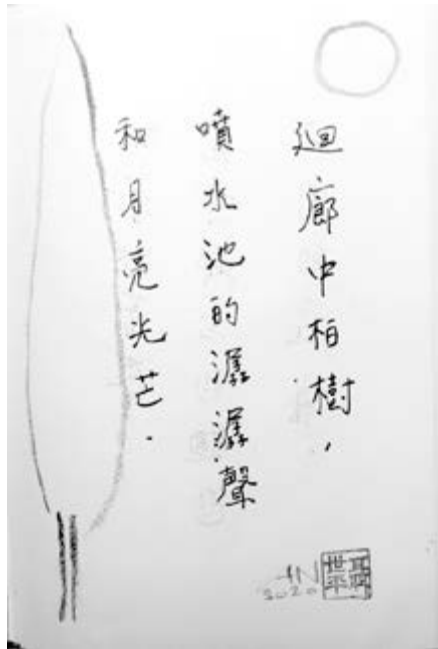 迴廊中柏樹，
噴水池的潺潺聲
和月亮光芒.
2020
世平